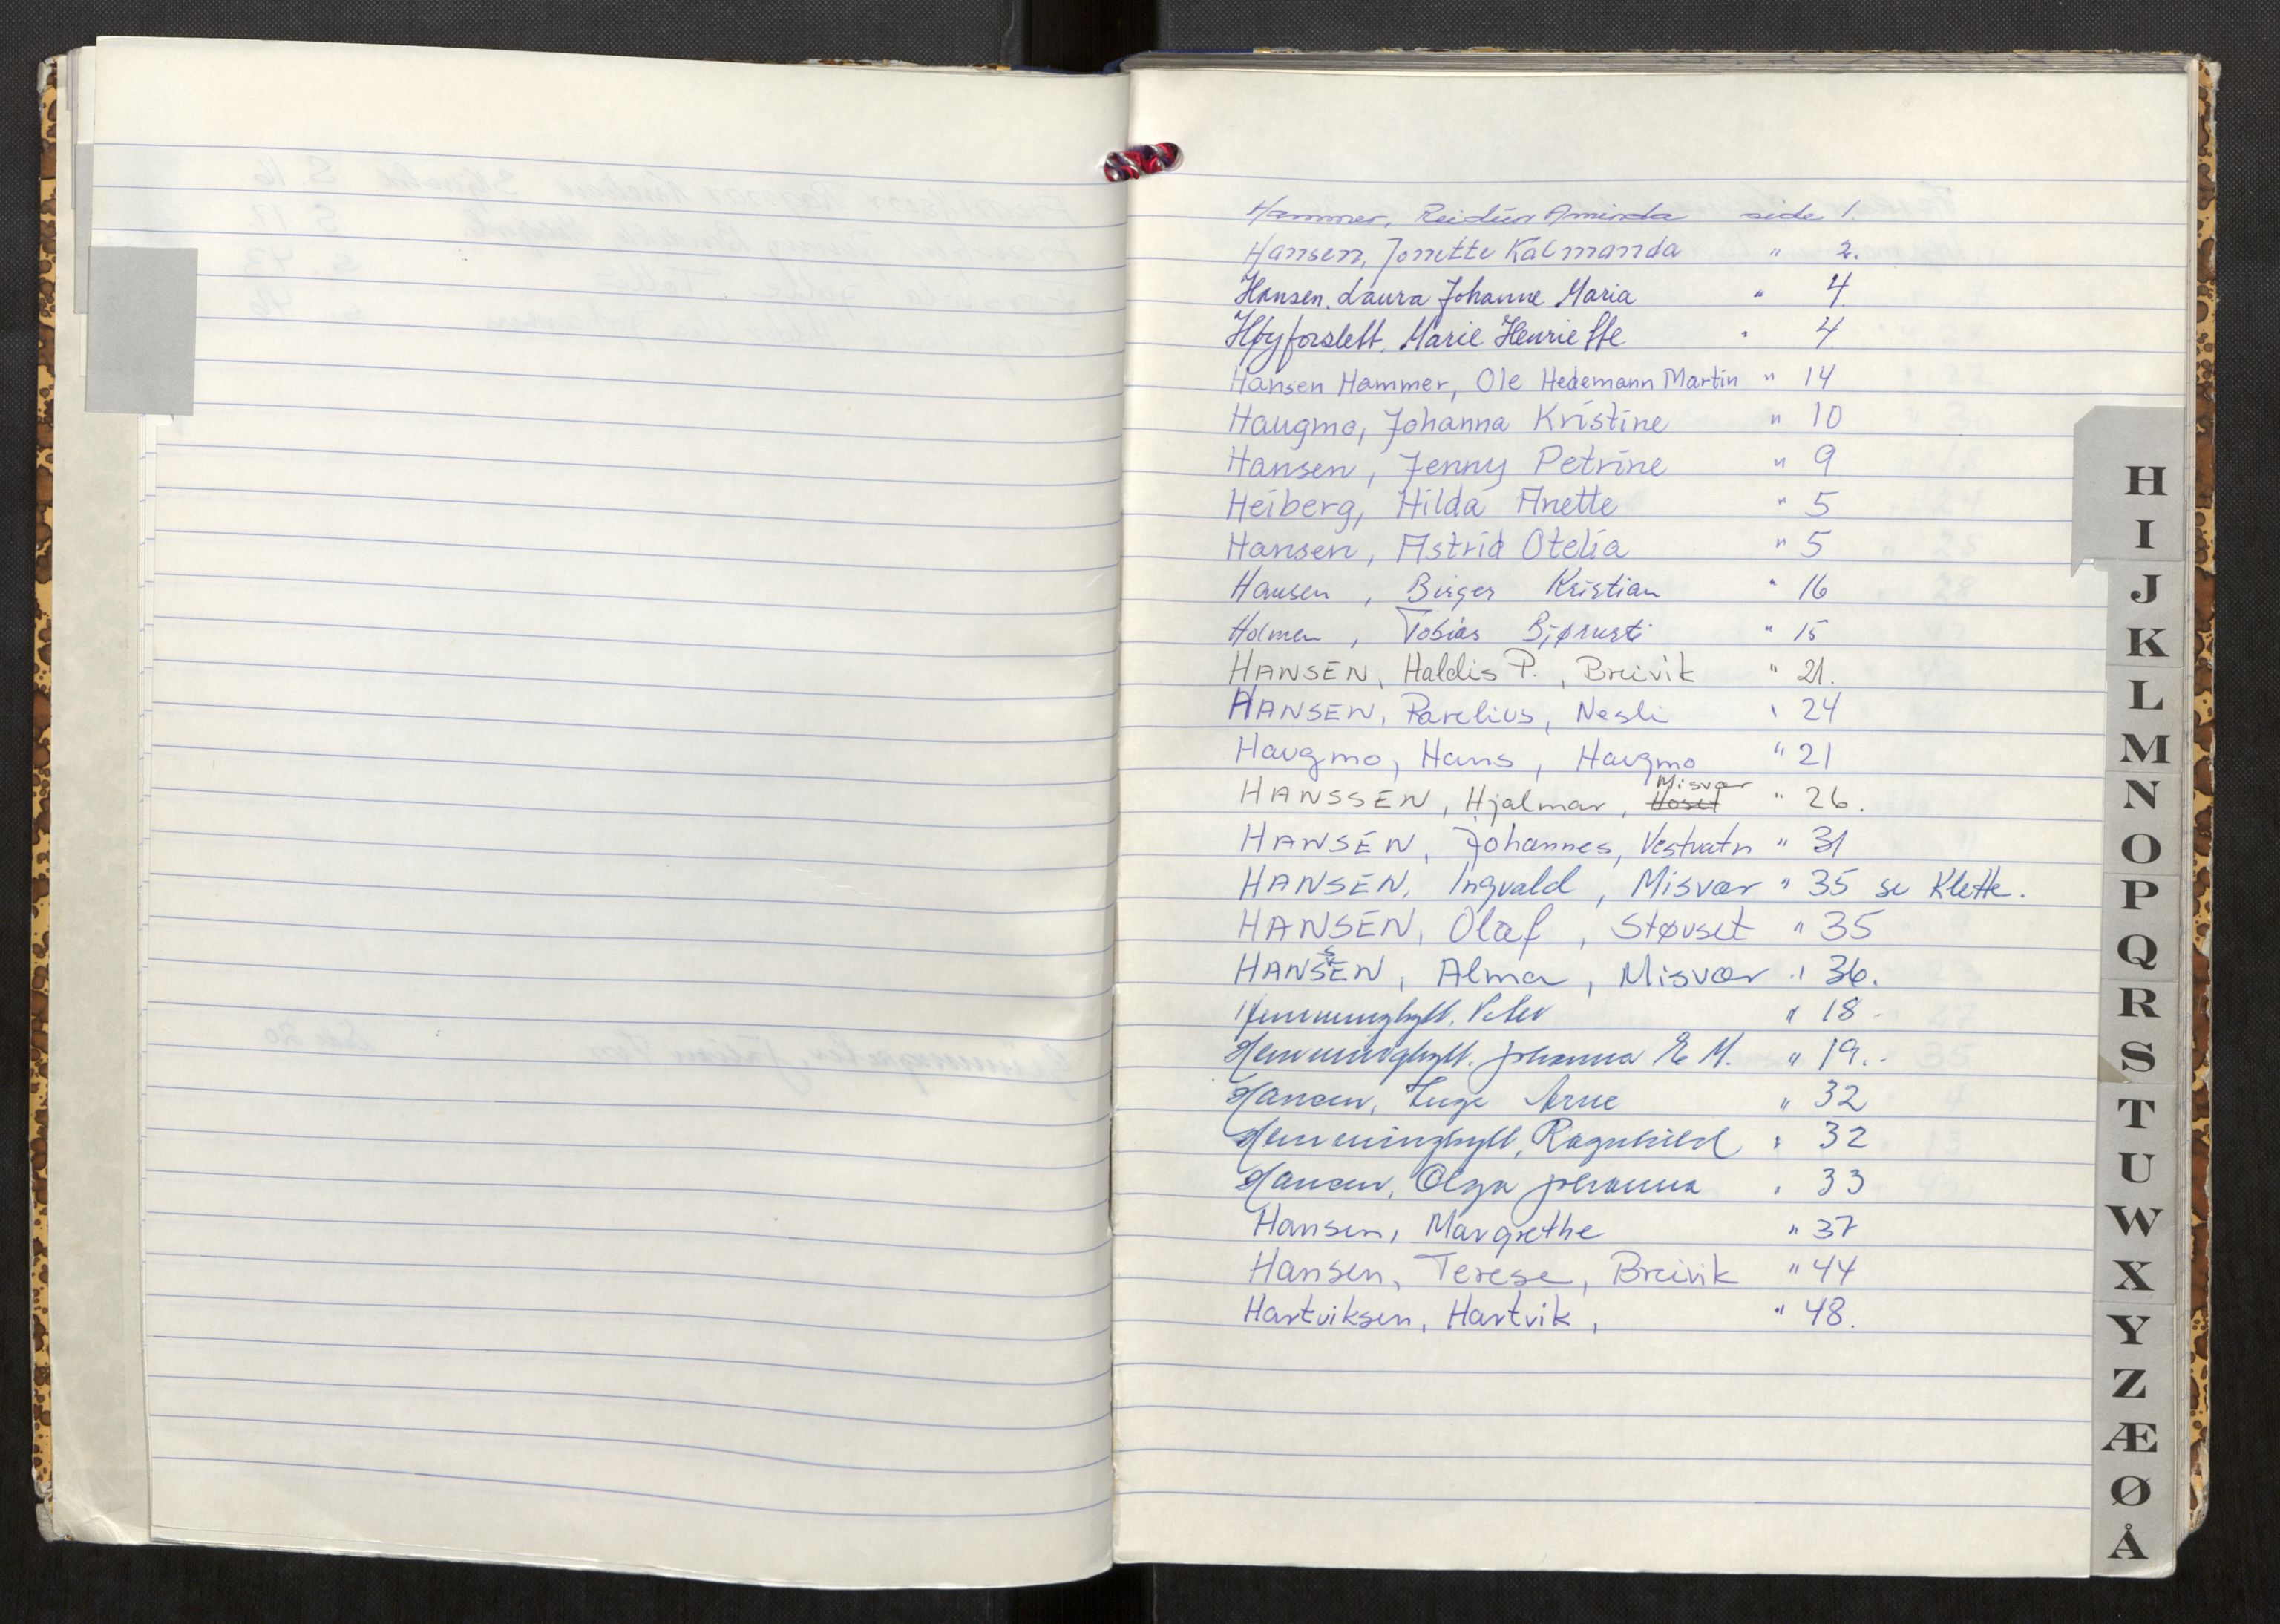 Hammer, Reidun Aminda side 1.
Hansen, Jonette Kalmanda " 2.
Hansen, Laura Johanne Maria " 4
Høyforslett, Marie Henriette " 4
Hansen Hammer, Ole Hedemann Martin " 14
Haugmo, Johanna Kristine " 10
Hansen, Jenny Petrine " 9
Heiberg, Hilda Anette " 5
Hansen, Astrid Otelia " 5
Hansen, Birger Kristian " 16
Holmen, Tobias " 15
HANSEN, Haldis P., Breivik " 21.
HANSEN, Parelius, Nesli " 24
Haugmo, Hans, Haugmo " 21
HANSSEN, Hjalmar, Misvær " 26.
HANSEN, Johannes, Vestvatn " 31
HANSEN, Ingvald, Misvær " 35 se Klette.
HANSEN, Olaf, Støvset " 35
HANSSEN, Alma, Misvær " 36.
Hemminghytt, Peder " 18
Hemminghytt, Johanna E M. " 19.
Hansen, Inge Arne " 32
Hemminghytt, Ragnhild " 32
Hansen, Olga Johanna " 33
Hansen, Margrethe " 37
Hansen, Terese, Breivik " 44
Hartviksen, Hartvik, " 48.
H
I
J
K
L
M
N
O
P
Q
R
S
T
U
W
X
Y
Z
Æ
Ø
Å